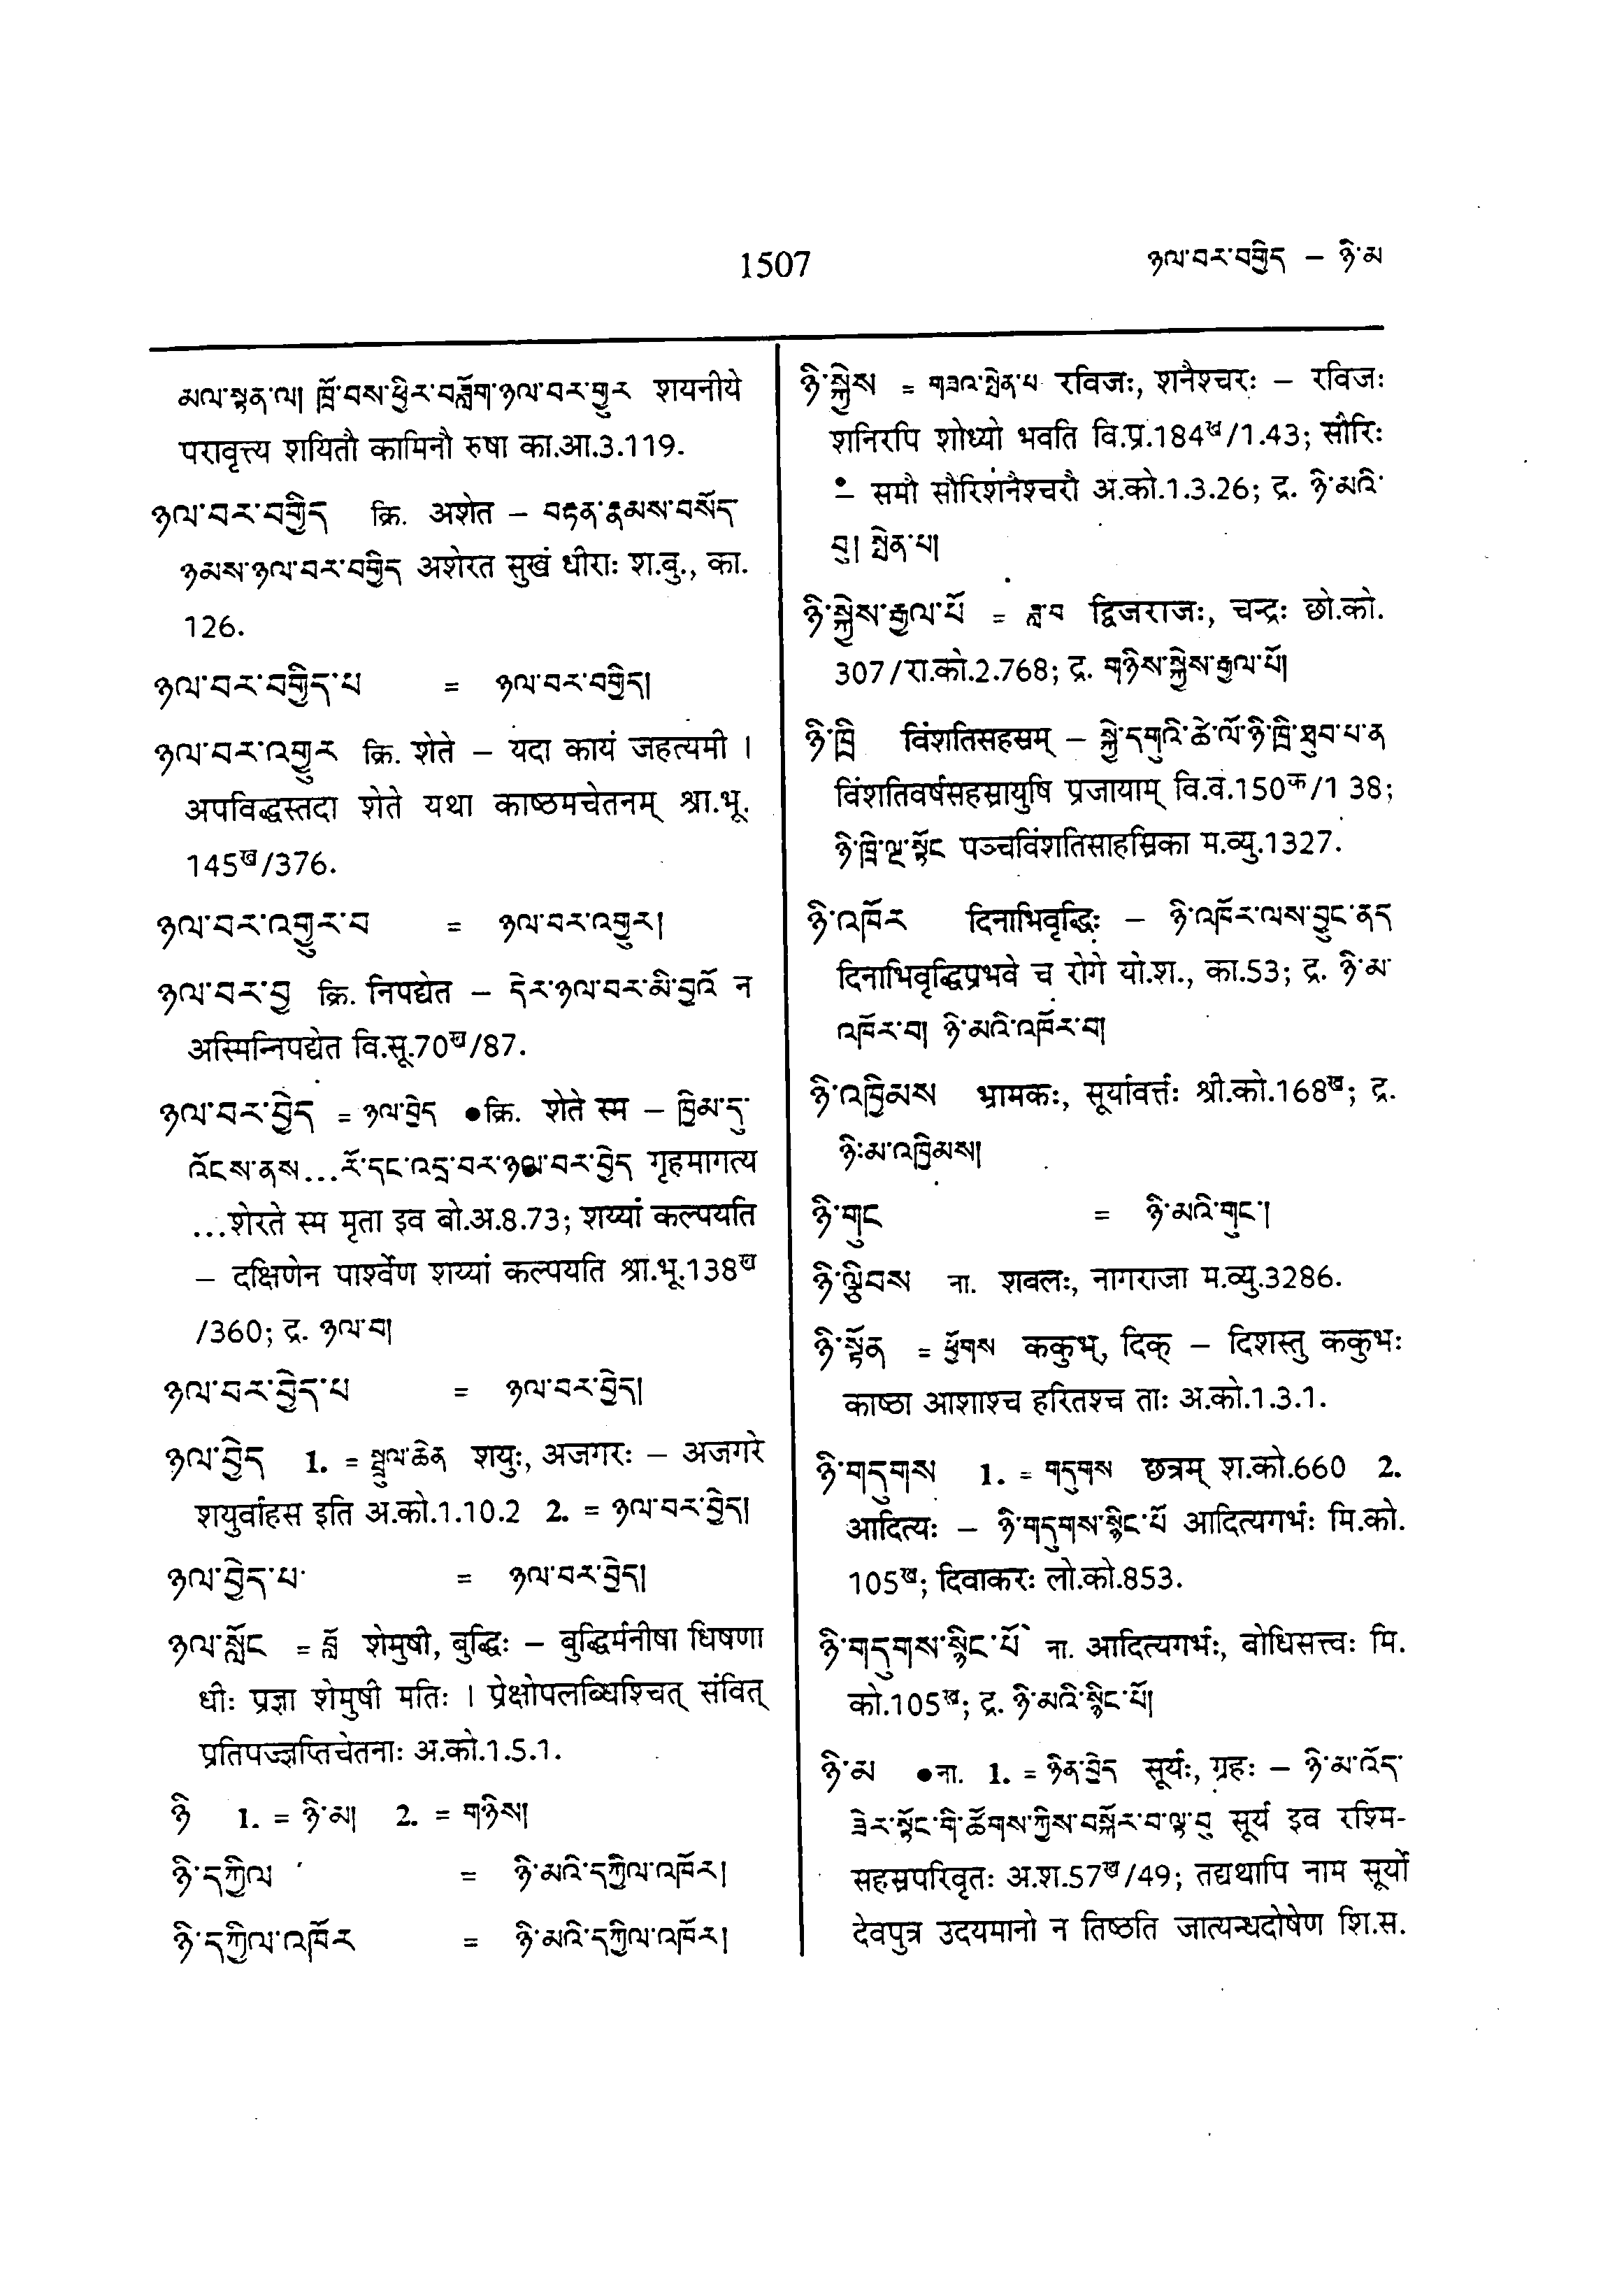 1507
ཉལ་བར་བགྱིད – ཉི་མ
མལ་སྟན་ལ། ཁྲོ་བས་ཕྱིར་བཟློག་ཉལ་བར་གྱུར शयनीये
परावृत्त्य शयितौ कामिनौ रुषा का.आ.3.119.
ཉལ་བར་བགྱིད क्रि. अशेत – བརྟན་རྣམས་བསོད་
ཉམས་ཉལ་བར་བགྱིད अशेरत सुखं धीराः श.बु., का.
126.
ཉལ་བར་བགྱིད་པ = ཉལ་བར་བགྱིད།
ཉལ་བར་འགྱུར क्रि. शेते – यदा कायं जहत्यमी ।
अपविद्धस्तदा शेते यथा काष्ठमचेतनम् श्रा.भू.
145ख/376.
ཉལ་བར་འགྱུར་བ = ཉལ་བར་འགྱུར།
ཉལ་བར་བྱ क्रि. निपद्येत – དེར་ཉལ་བར་མི་བྱའོ न
अस्मिन्निपद्येत वि.सू.70ख/87.
ཉལ་བར་བྱེད = ཉལ་བྱེད ●क्रि. शेते स्म – ཁྱིམ་དུ་
འོངས་ནས...རོ་དང་འདྲ་བར་ཉལ་བར་བྱེད गृहमागत्य
...शेरते स्म मृता इव बो.अ.8.73; शय्यां कल्पयति
– दक्षिणेन पार्श्वेण शय्यां कल्पयति श्रा.भू.138ख
/360; द्र. ཉལ་བ།
ཉལ་བར་བྱེད་པ = ཉལ་བར་བྱེད།
ཉལ་བྱེད 1. = སྦྲུལ་ཆེན शयुः, अजगरः – अजगरे
शयुर्वाहस इति अ.को.1.10.2 2. = ཉལ་བར་བྱེད།
ཉལ་བྱེད་པ་ = ཉལ་བར་བྱེད།
ཉལ་སློང = བློ शेमुषी, बुद्धिः – बुद्धिर्मनीषा धिषणा
धीः प्रज्ञा शेमुषी मतिः । प्रेक्षोपलब्धिश्चित् संवित्
प्रतिपज्ज्ञप्तिचेतनाः अ.को.1.5.1.
ཉི 1. = ཉི་མ། 2. = གཉིས།
ཉི་དཀྱིལ = ཉི་མའི་དཀྱིལ་འཁོར།
ཉི་དཀྱིལ་འཁོར = ཉི་མའི་དཀྱིལ་འཁོར།
ཉི་སྐྱེས = གཟའ་སྤེན་པ रविजः, शनैश्चरः – रविजः
शनिरपि शोध्यो भवति वि.प्र.184ख/1.43; सौरिः
– समौ सौरिशनैश्चरौ अ.को.1.3.26; द्र. ཉི་མའི་
བུ། སྤེན་པ།
ཉི་སྐྱེས་རྒྱལ་པོ = ཟླ་བ द्विजराजः, चन्द्रः छो.को.
307/रा.को.2.768; द्र. གཉིས་སྐྱེས་རྒྱལ་པོ།
ཉི་ཁྲི विंशतिसहस्रम् – སྐྱེ་དགུའི་ཚེ་ལོ་ཉི་ཁྲི་ཐུབ་པ་ན
विंशतिवर्षसहस्रायुषि प्रजायाम् वि.व.150क/1 38;
ཉི་ཁྲི་ལྔ་སྟོང पञ्चविंशतिसाहस्रिका म.व्यु.1327.
ཉི་འཁོར दिनाभिवृद्धिः – ཉི་འཁོར་ལས་བྱུང་ནད
दिनाभिवृद्धिप्रभवे च रोगे यो.श., का.53; द्र. ཉི་མ་
འཁོར་བ། ཉི་མའི་འཁོར་བ།
ཉི་འཁྱིམས भ्रामकः, सूर्यावर्त्तः श्री.को.168ख; द्र.
ཉི་མ་འཁྱིམས།
ཉི་གུང = ཉི་མའི་གུང་།
ཉི་ལྟིབས ना. शबलः, नागराजा म.व्यु.3286.
ཉི་སྟོན = ཕྱོགས ककुभ्, दिक् – दिशस्तु ककुभः
काष्ठा आशाश्च हरितश्च ताः अ.को.1.3.1.
ཉི་གདུགས 1. = གདུགས छत्रम् श.को.660 2.
आदित्यः – ཉི་གདུགས་སྙིང་པོ आदित्यगर्भः मि.को.
105ख; दिवाकरः लो.को.853.
ཉི་གདུགས་སྙིང་པོ ना. आदित्यगर्भः, बोधिसत्त्वः मि.
को.105ख; द्र. ཉི་མའི་སྙིང་པོ།
ཉི་མ ●ना. 1. = ཉིན་བྱེད सूर्यः, ग्रहः – ཉི་མ་འོད་
ཟེར་སྟོང་གི་ཚོགས་ཀྱིས་བསྐོར་བ་ལྟ་བུ सूर्य इव रश्मि-
सहस्रपरिवृतः अ.श.57ख/49; तद्यथापि नाम सूर्यो
देवपुत्र उदयमानो न तिष्ठति जात्यन्धदोषेण शि.स.